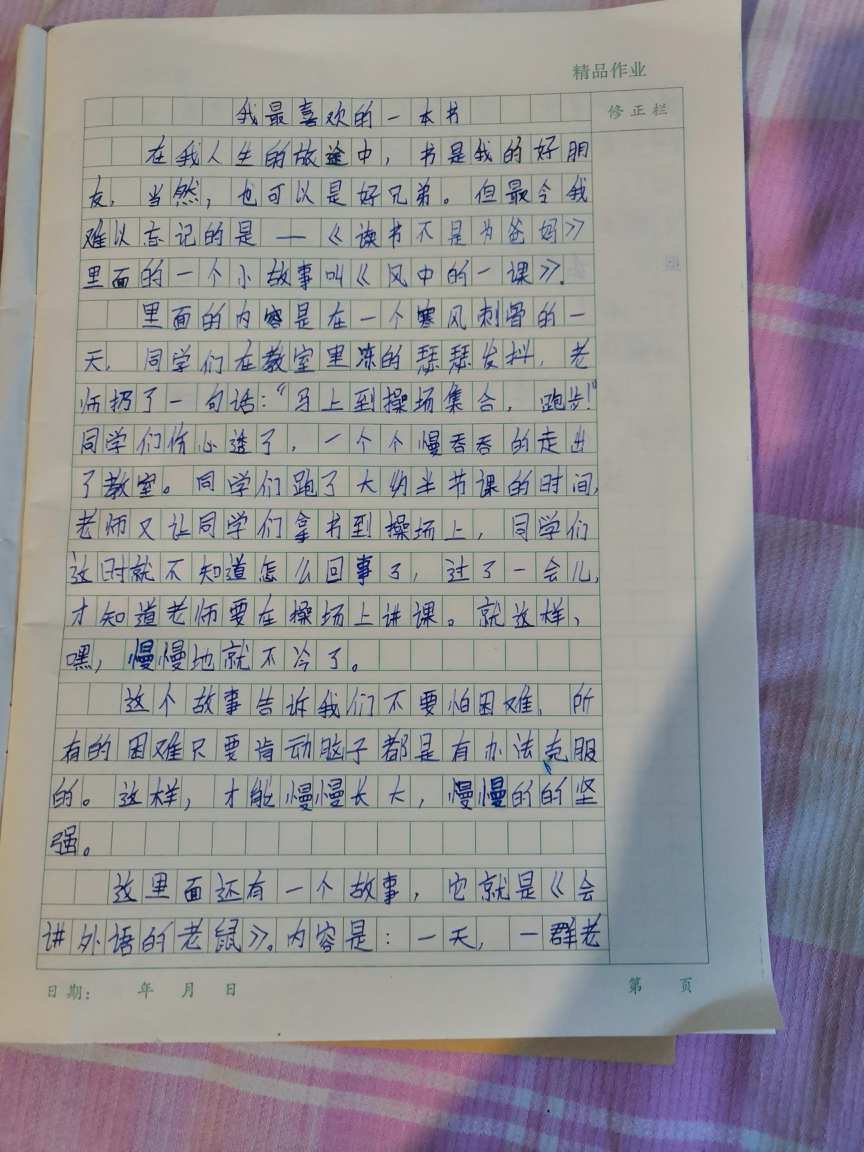 精品作业
修正栏
我最喜欢的一本书
在我人生的故途中，书是我的好朋
友，当然，也可以是好兄弟。但最令我
难以忘记的是——《读书不是为爸妈》
里面的一个小故事叫《风中的一课》。
里面的内容是在一个寒风刺骨的一
天，同学们在教室里冻的瑟瑟发抖，老
师扔了一句话：“马上到操场集合，跑步！”
同学们伤心透了，一个个慢吞吞的走出
了教室。同学们跑了大约半节课的时间，
老师又让同学们拿书到操场上，同学们
这时就不知道怎么回事了，过了一会儿，
才知道老师要在操场上讲课。就这样，
嘿，慢慢地就不冷了。
这个故事告诉我们不要怕困难，所
有的困难只要肯动脑子都是有办法克服
的。这样，才能慢慢长大，慢慢的的坚
强。
这里面还有一个故事，它就是《会
讲外语的老鼠》。内容是：一天，一群老
日期： 年 月 日
第 页